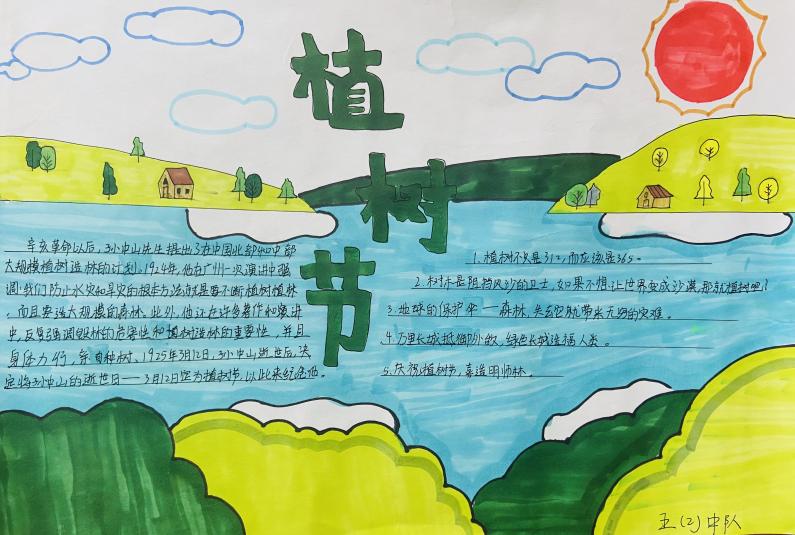 植
树
节
辛亥革命以后，孙中山先生提出了在中国北部和中部
大规模植树造林的计划，1924年，他在广州一次演讲中强
调：我们防止水灾和旱灾的根本方法就是要不断植树植林
，而且要造大规模的森林。此外，他还在许多著作和演讲
中，反复强调毁林的危害性和植树造林的重要性，并且
身体力行，亲自种树，1925年3月12日，孙中山逝世后，决
定将孙中山的逝世日——3月12日定为植树节，以此来纪念他。
1. 植树不只是312，而应该是365。
2. 树木是阻挡风沙的卫士，如果不想让世界变成沙漠，那就植树吧！
3. 地球的保护伞——森林，失去它就带来无穷的灾难。
4. 万里长城抵御外敌，绿色长城造福人类。
5. 庆祝植树节，喜造用师林。
五(2)中队